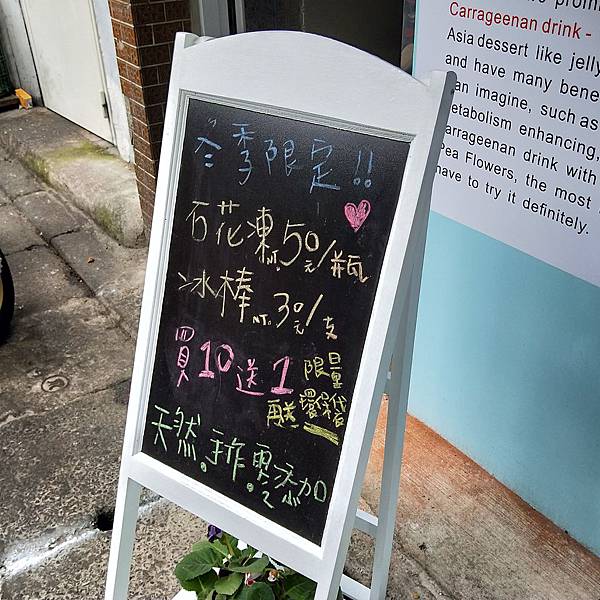 冬季限定!!
石花凍NT.50元/瓶
冰棒NT.30元/支
買10送1 限量
再送 環保袋
天然.手作.零添加
Carrageenan drink -
Asia dessert like jelly
and have many bene
an imagine, such as
etabolism enhancing,
arrageenan drink with
Pea Flowers, the most
have to try it definitely.